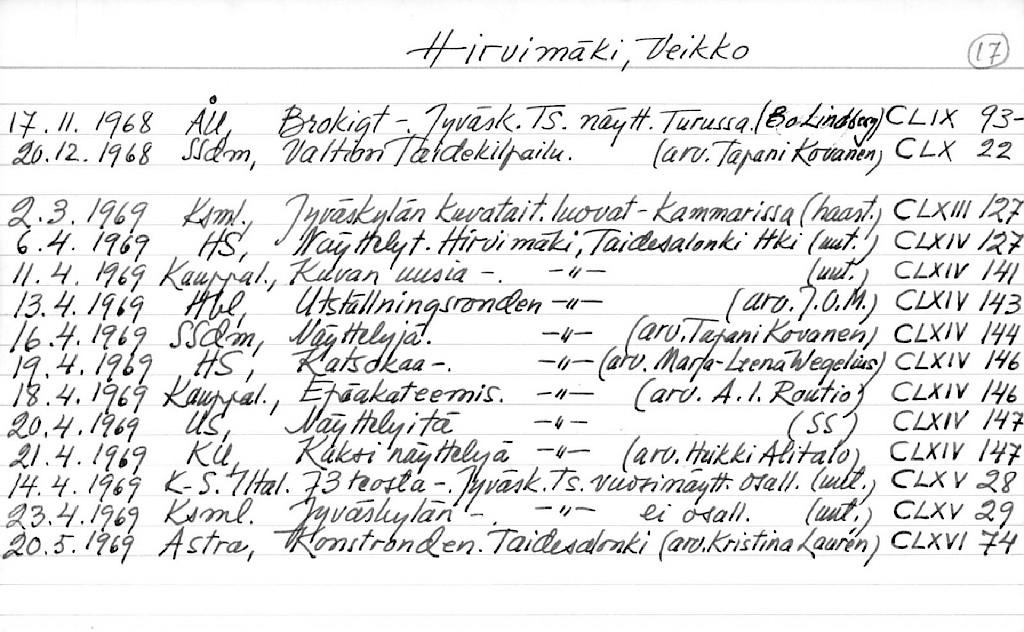 Hirvimäki, Veikko 17
17.11.1968 ÅU, Brokigt -. Jyväsk. Ts. näytt. Turussa. (Bo Lindberg) CLIX 93-
20.12.1968 SSdm, Valtion Taidekilpailu. (arv. Tapani Kovanen) CLX 22
2.3.1969 Ksml., Jyväskylän kuvatait. luovat - Kammarissa (haast.) CLXIII 127
6.4.1969 HS, Näyttelyt. Hirvimäki, Taidesalonki Hki (uut.) CLXIV 127
11.4.1969 Kauppal., Kuvan uusia -. -"- (uut.) CLXIV 141
13.4.1969 Hbl, Utställningsronden -"- (arv. J.O.M.) CLXIV 143
16.4.1969 SSdm, Näyttelyjä. -"- (arv. Tapani Kovanen) CLXIV 144
19.4.1969 HS, Katsokaa -. -"- (arv. Marja-Leena Wegelius) CLXIV 146
18.4.1969 Kauppal., Epäakateemis. -"- (arv. A.I. Routio) CLXIV 146
20.4.1969 US, Näyttelyitä -"- (SS) CLXIV 147
21.4.1969 KU, Kaksi näyttelyä -"- (arv. Heikki Alitalo) CLXIV 147
14.4.1969 K-S. Iltal. 73 teosta -. Jyväsk. Ts. vuosinäytt. osall. (uut.) CLXV 28
23.4.1969 Ksml. Jyväskylän -. -"- ei osall. (uut.) CLXV 29
20.5.1969 Astra, Konstronden. Taidesalonki (arv. Kristina Laurén) CLXVI 74